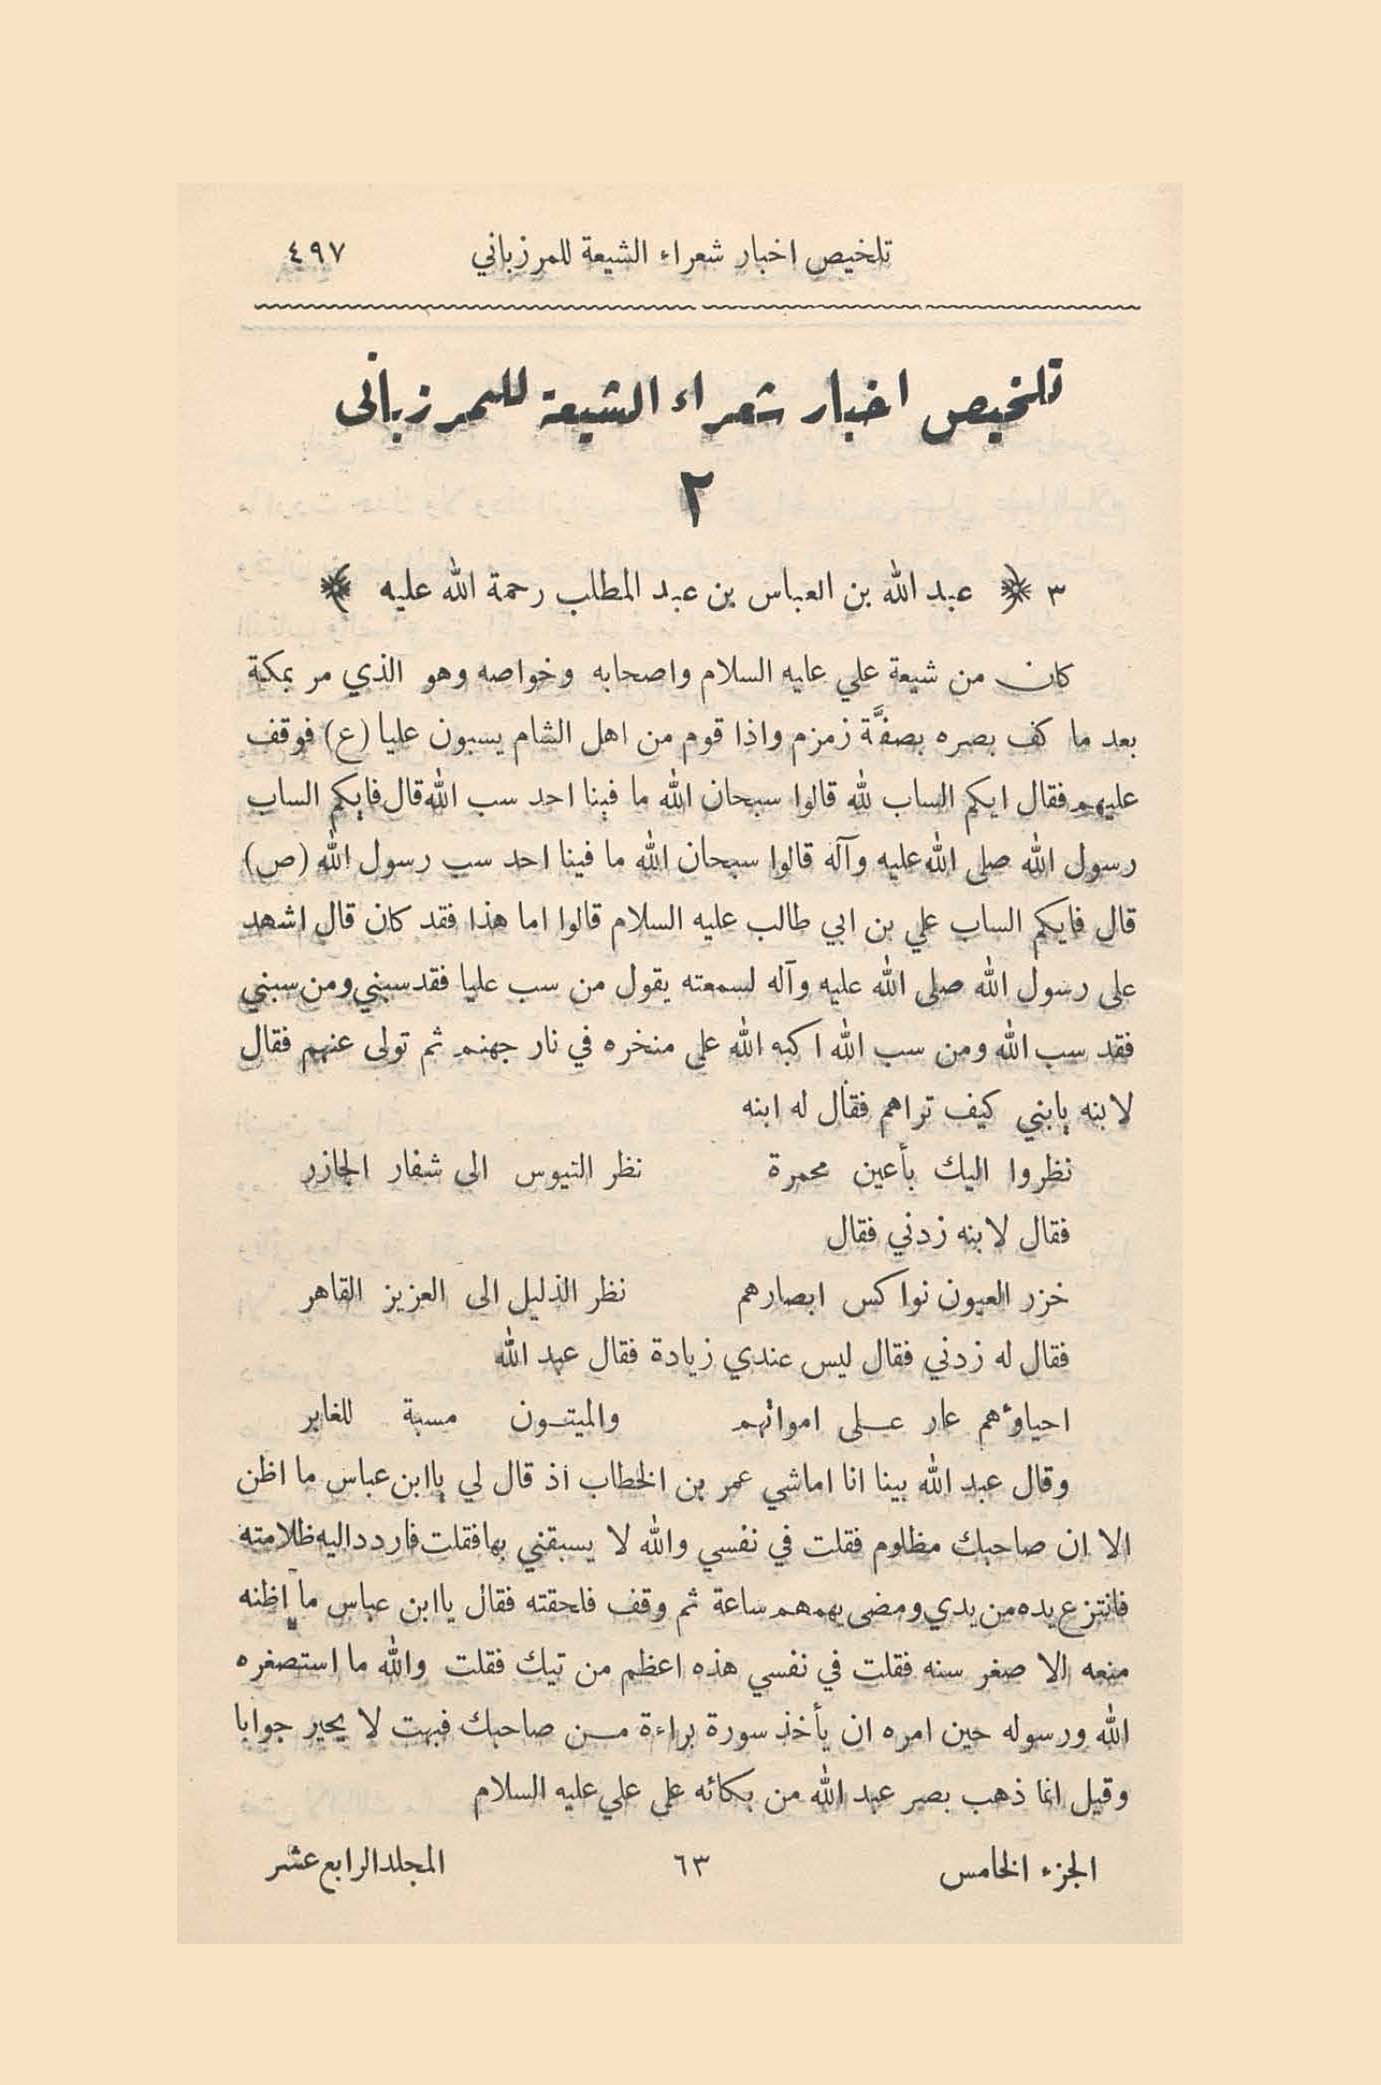 تلخيص اخبار شعراء الشيعة للمرزباني ٤٩٧
تلخيص اخبار شعراء الشيعة للمرزباني
٢
٣ ﴿ عبد الله بن العباس بن عبد المطلب رحمة الله عليه ﴾
كان من شيعة علي عليه السلام واصحابه وخواصه وهو الذي مر بمكة
بعد ما كف بصره بصفَّة زمزم واذا قوم من اهل الشام يسبون عليا (ع) فوقف
عليهم فقال ايكم الساب لله قالوا سبحان الله ما فينا احد سب الله قال فايكم الساب
رسول الله صلى الله عليه وآله قالوا سبحان الله ما فينا احد سب رسول الله (ص)
قال فايكم الساب علي بن ابي طالب عليه السلام قالوا اما هذا فقد كان قال اشهد
على رسول الله صلى الله عليه وآله لسمعته يقول من سب عليا فقد سبني ومن سبني
فقد سب الله ومن سب الله اكبه الله على منخره في نار جهنم ثم تولى عنهم فقال
لابنه يابني كيف تراهم فقال له ابنه
نظروا اليك بأعين محمرة نظر التيوس الى شفار الجازر
فقال لابنه زدني فقال
خزر العيون نواكس ابصارهم نظر الذليل الى العزيز القاهر
فقال له زدني فقال ليس عندي زيادة فقال عبد الله
احياؤهم عار عـــلى امواتهم والميتــون مسبة للغابر
وقال عبد الله بينا انا اماشي عمر بن الخطاب اذ قال لي يا ابن عباس ما اظن
الا ان صاحبك مظلوم فقلت في نفسي والله لا يسبقني بها فقلت فاردد اليه ظلامته
فانتزع يده من يدي ومضى يهمهم ساعة ثم وقف فلحقته فقال يا ابن عباس ما اظنه
منعه الا صغر سنه فقلت في نفسي هذه اعظم من تيك فقلت والله ما استصغره
الله ورسوله حين امره ان يأخذ سورة براءة مــن صاحبك فبهت لا يحير جوابا
وقيل انما ذهب بصر عبد الله من بكائه على علي عليه السلام
الجزء الخامس ٦٣ المجلد الرابع عشر